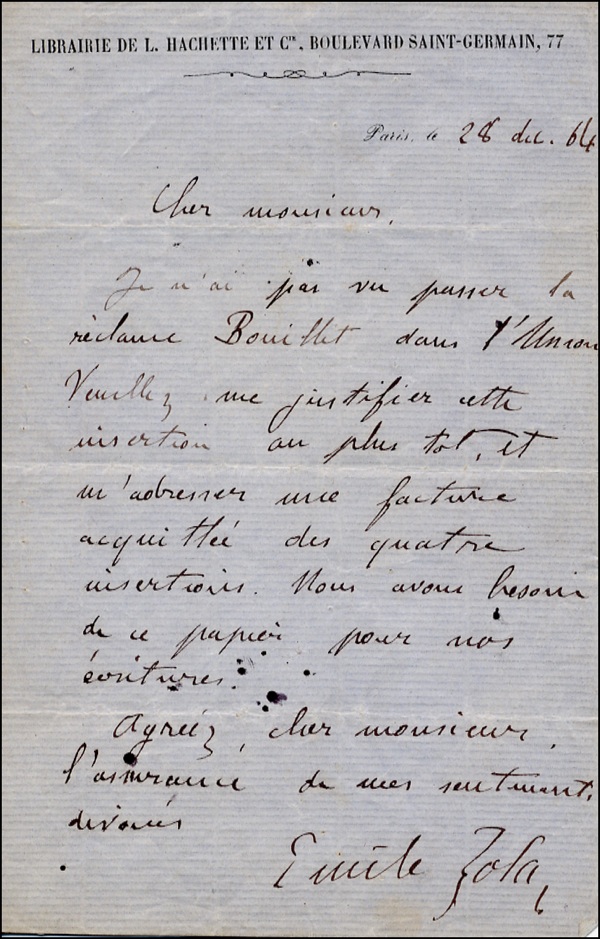 LIBRAIRIE DE L. HACHETTE ET Cie, BOULEVARD SAINT-GERMAIN, 77
Paris, le 28 déc. 64
Cher monsieur,
Je n'ai pas vu passer la
réclame Bouillet dans l'Union
Veuillez me justifier cette
insertion au plus tot, et
m'adresser une facture
acquittée des quatre
insertions. Nous avons besoin
de ce papier pour nos
écritures.
Agréez, cher monsieur,
l'assurance de mes sentiments
dévoués
Emile Zola